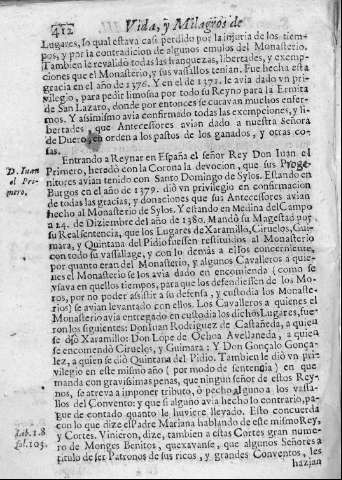 412 Vida, y Milagros de
Lugares, lo qual estava casi perdido por la injuria de los tiem-
pos, y por la contradicion de algunos emulos del Monasterio.
Tambien le revalidò todas las franquezas, libertades, y exemp-
ciones que el Monasterio, y sus vassallos tenian. Fue hecha esta
gracia en el año de 1376. Y en el de 1372. le avia dado vn pri-
vilegio, para pedir limosna por todo su Reyno para la Ermita
de San Lazaro, donde por entonces se curavan muchos enfer-
mos. Y asimismo avia confirmado todas las exempciones, y li-
bertades, que Antecessores avian dado a nuestra Señora
de Duero en orden a los pastos de los ganados, y otras co-
sas.
Entrando a Reynar en España el señor Rey Don Iuan el
Primero, heredò con la Corona la devocion, que sus Proge-
nitores avian tenido con Santo Domingo de Sylos. Estando en
Burgos en el año de 1379. diò vn privilegio en confirmacion
de todas las gracias, y donaciones que sus Antecessores avian
hecho al Monasterio de Sylos. Y estando en Medina del Campo
a 14. de Diziembre del año de 1380. Mandò su Magestad por
su Real sentencia, que los Lugares de Xaramillo, Ciruelos, Gui-
mara, y Quintana del Pidio fuessen restituidos al Monasterio
con todo su vassallage, y con lo demàs a ellos concerniente,
por quanto eran del Monasterio, y algunos Cavalleros a quie-
nes el Monasterio se los avia dado en encomienda (como se
vsava en quellos tiempos, para que los defendiessen de los Mo-
ros, por no poder assistir a su defensa, y custodia los Monaste-
rios) se avian levantado con ellos. Los Cavalleros a quienes el
Monasterio avia entregado en custodia los dichos Lugares, fue-
ron los siguientes: Don Iuan Rodriguez de Castañeda, a quien
se diò Xaramillo: Don Lope de Ochoa Avellaneda, a quien
se encomendò Ciruelos, y Guimara: Y Don Gonçalo Gonça-
lez, a quien se diò Quintana del Pidio. Tambien le diò vn pri-
vilegio en este mismo año (por modo de sentencia) en que
manda con gravissimas penas, que ningun señor de estos Rey-
nos, se atreva a imponer tributo, ò pecho alguno a los vassa-
llos del Convento y que si alguno avia hecho lo contrario, pa-
gue de contado quanto le huviere llevado. Esto concuerda
con lo que dize el Padre Mariana hablando de este mismo Rey,
y Cortes. Vinieron, dize, tambien a estas Cortes gran nume-
ro de Monges Benitos, quexavanse, que algunos Señores a
titulo de ser Patronos de sus ricos, y grandes Conventos, les
hazian
D. Iuan
el Pri-
mero,
Lib. 18
fol. 105.